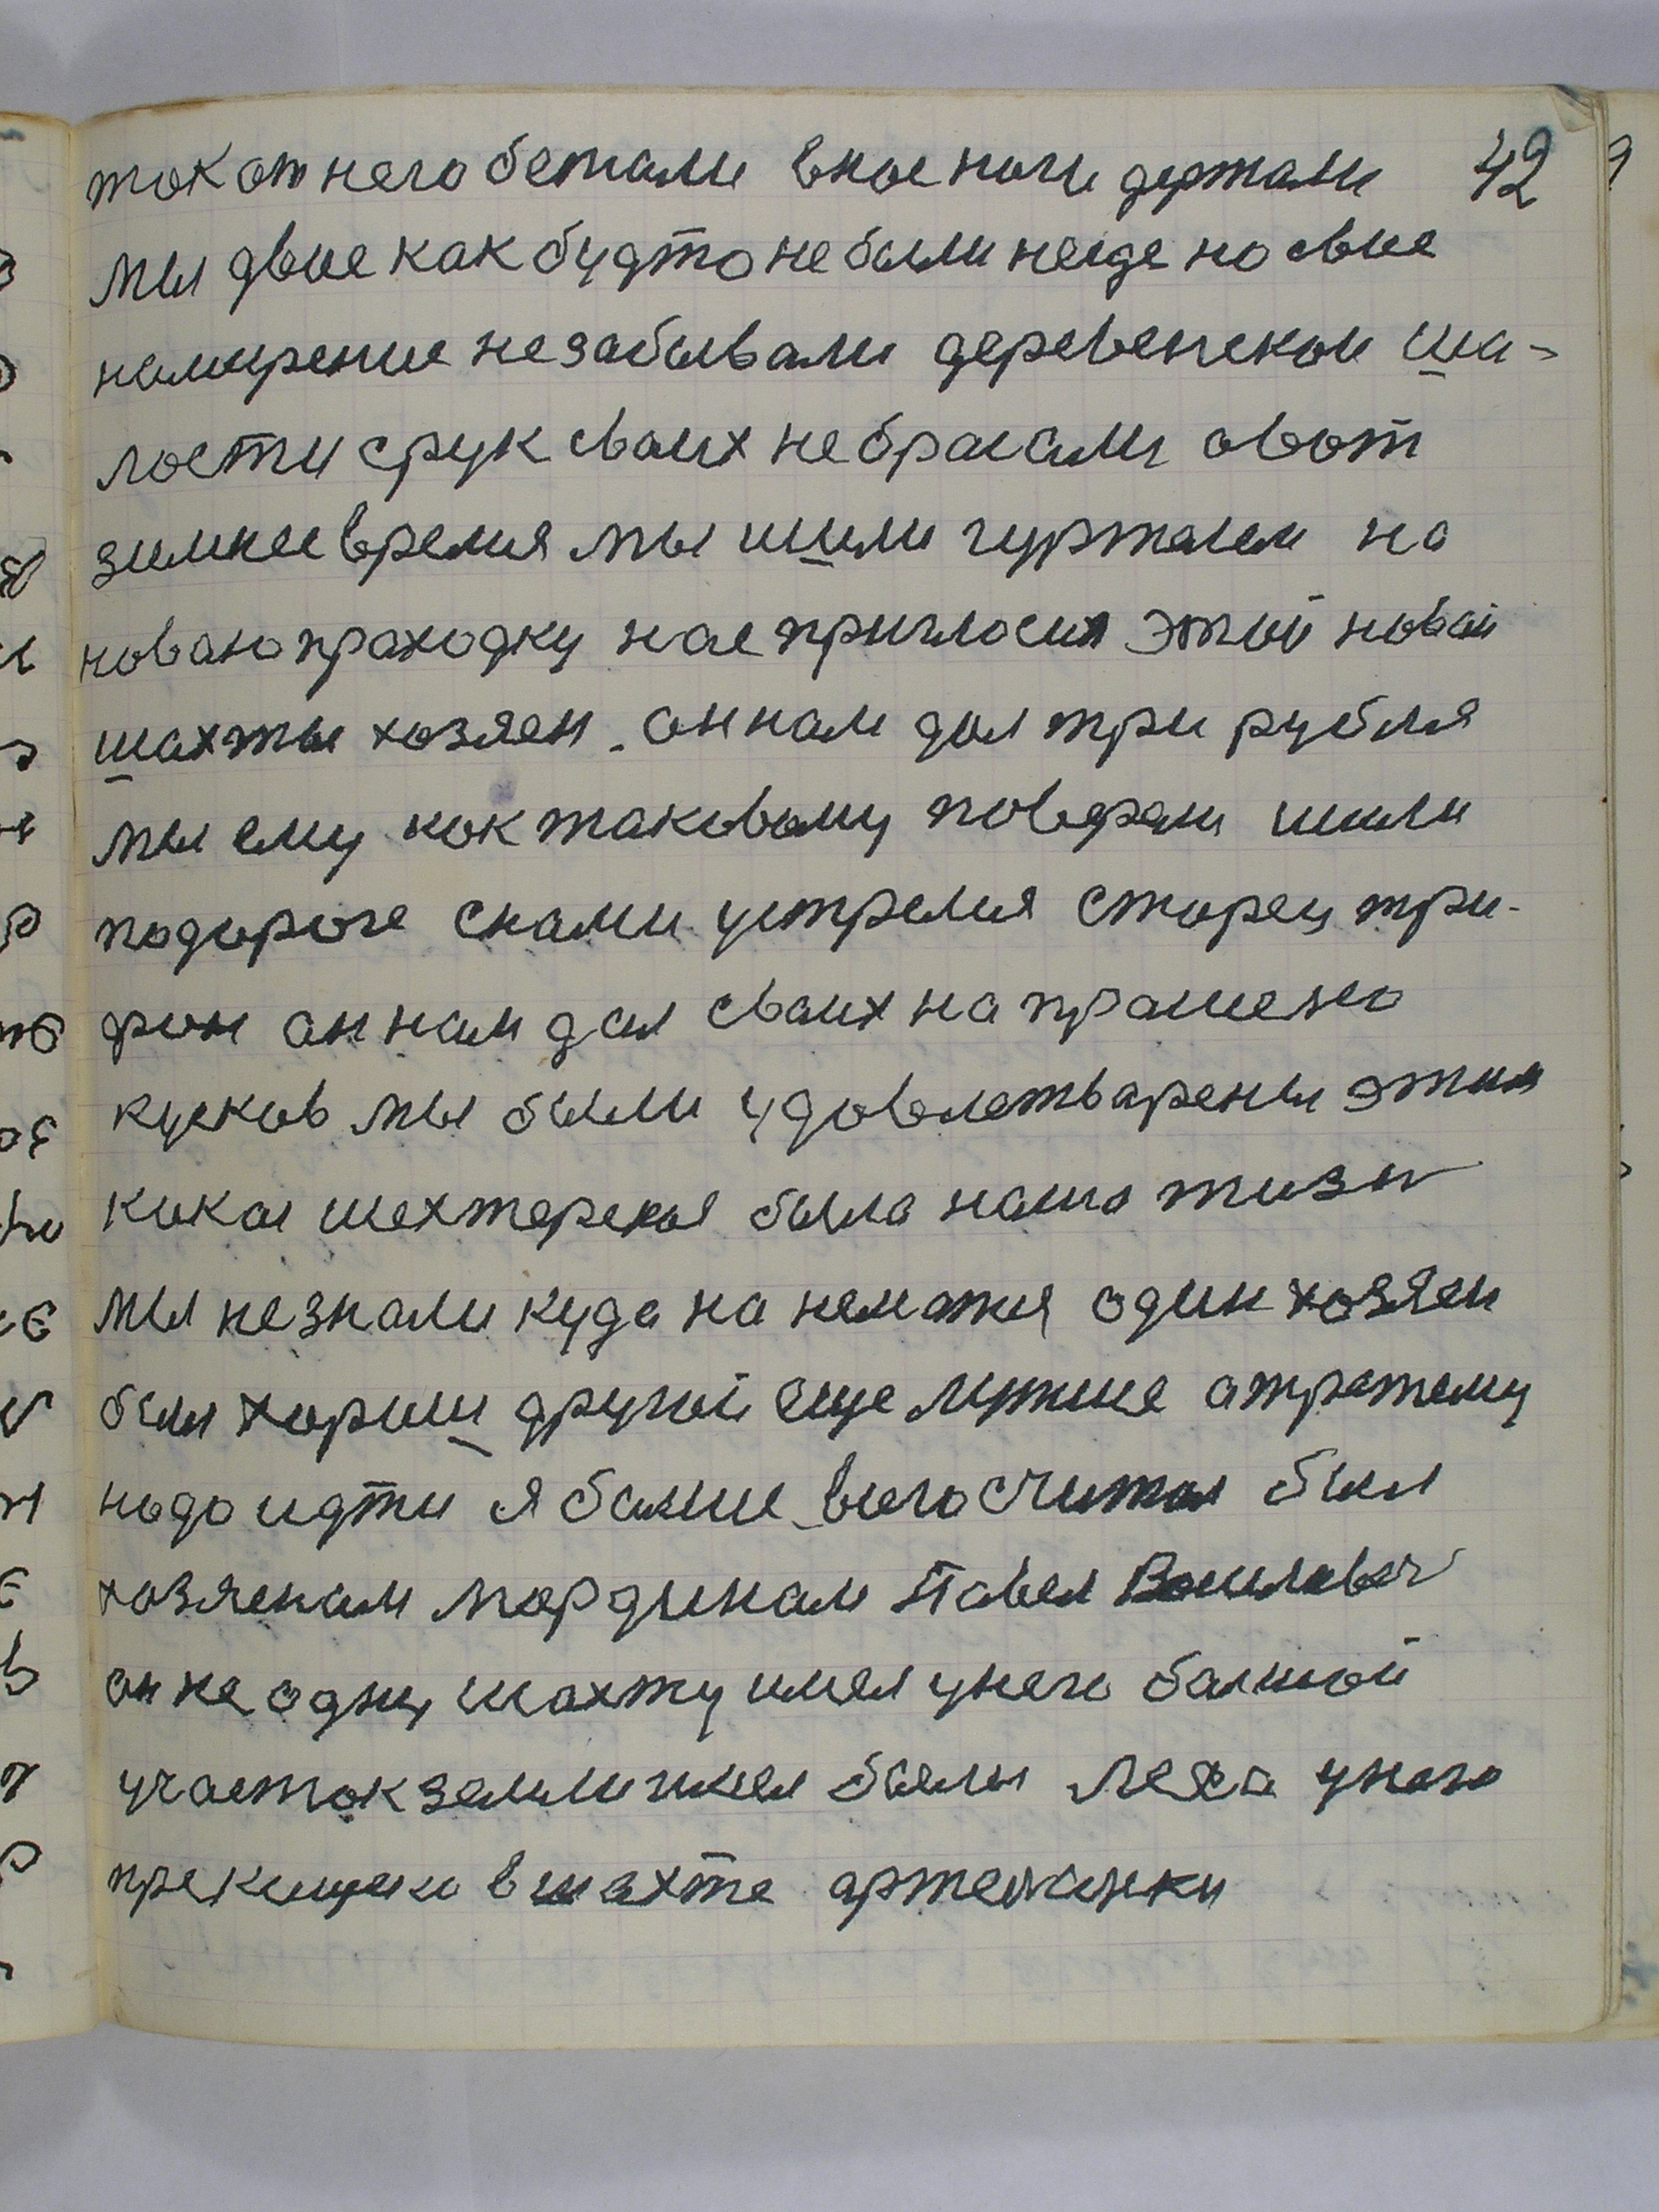 ток от него бежали вное ночи держали 42
мы двое как будто небыли негде но свое
намирение незабывали деревенской ша-
лости срук сваих не брасали овот
зимнее время мы шили гурталем на
новаю праходку нас пригласил этой новай
шахты хозяен. он нам дал три рубля
мы ему как таковому поверели шили
подароге снами устрелся старец три-
фон он нам дал сваих на прашено
кусков мы были удовалетварены этим
какая шахтерская была наша жизн
мы незнали куда на нематься один хозяен
был харош другой еще лутше атретему
надо идти я болше всего считал был
хозяеном мордином Павел Василевеч
он не одну шахту имел унего балшой
участок земли имел были леса унего
прекащеки в шахте артелщики